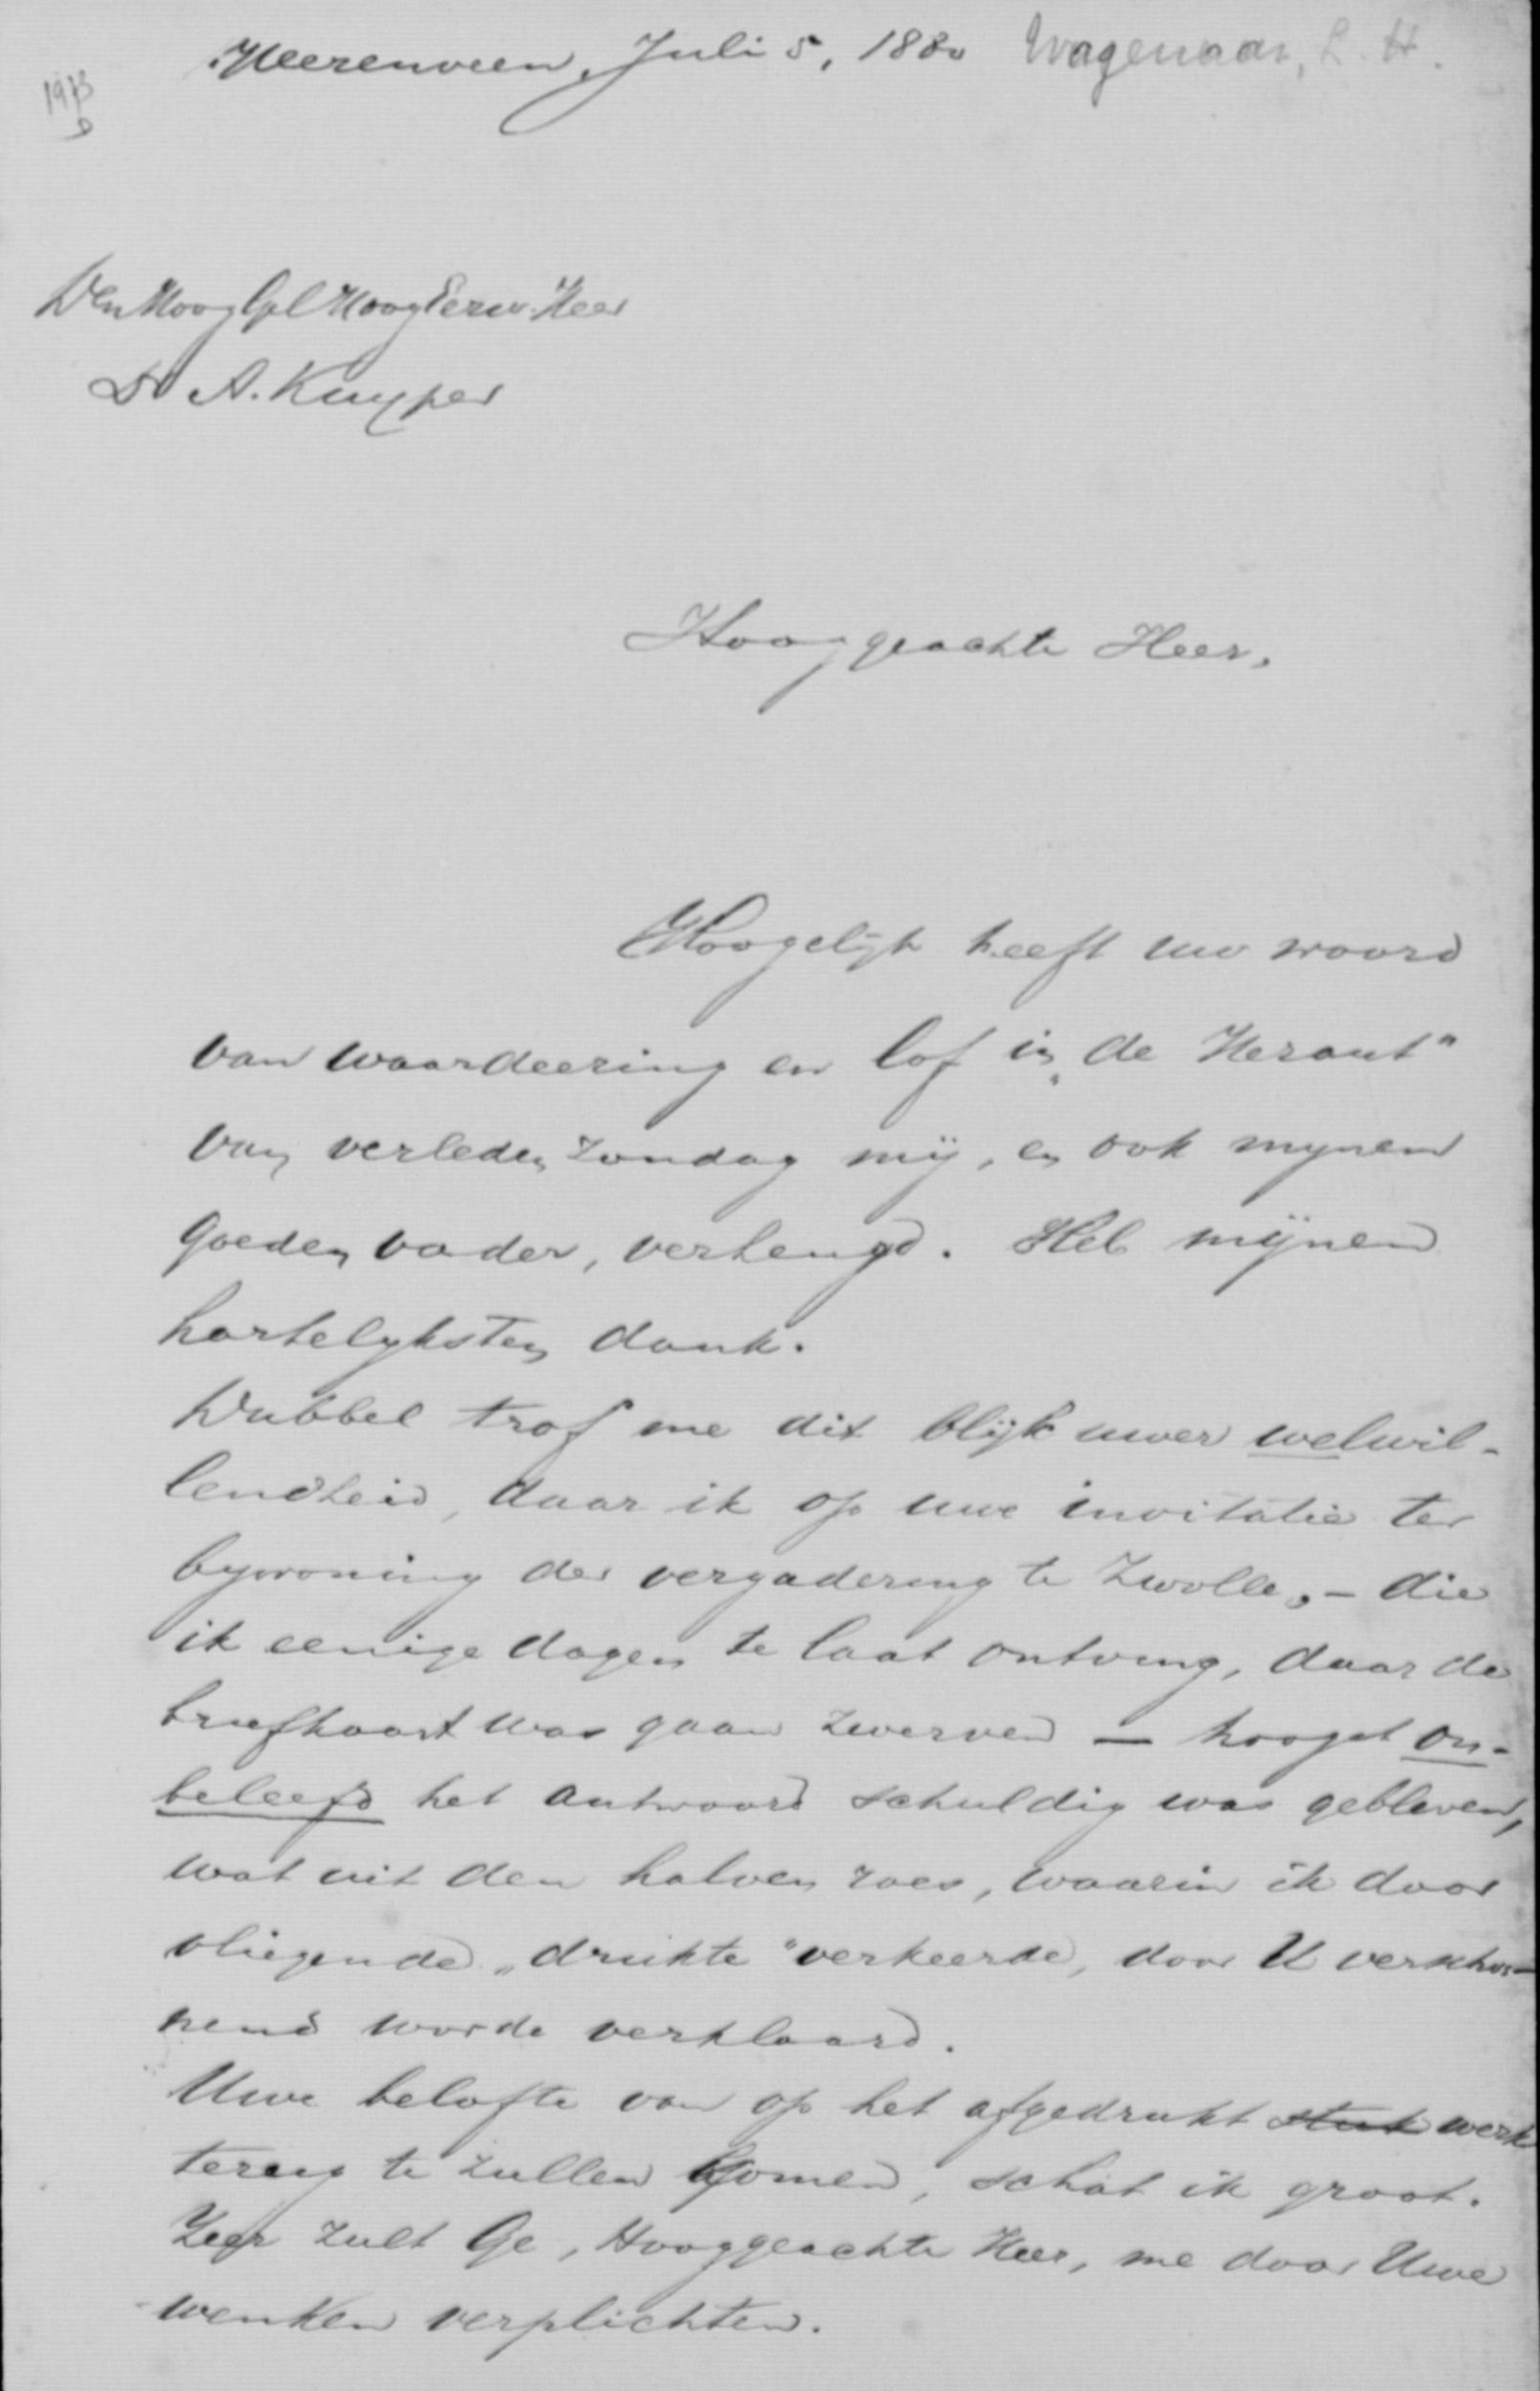 Heerenveen, Juli 5, 1880 Wagenaar, L. H.
Den HoogGel HoogEerw. Heer
Dr A. Kuyper
Hooggeachte Heer,
Hoogelijk heeft uw woord
van waardeering en lof in „de Heraut"
van verleden Zondag mij, en ook mynen
goeden vader, verheugd. Heb mijnen
hartelyksten dank.
Dubbel trof me dit blijk uwer welwil-
lendheid, daar ik op uwe invitatie ter
bywoning der vergadering te Zwolle, - die
ik eenige dagen te laat ontving, daar de
briefkaart was gaan zwerven — hoogst on-
beleefd het antwoord schuldig was gebleven,
wat uit den halven roes, waarin ik door
vliegende „drukte" verkeerde, door U verschoo-
nend worde verklaard.
Uwe belofte van op het afgedrukt stuk werk
terug te zullen komen, schat ik groot.
Zeer zult Ge, Hooggeachte Heer, me door Uwe
wenken verplichten.